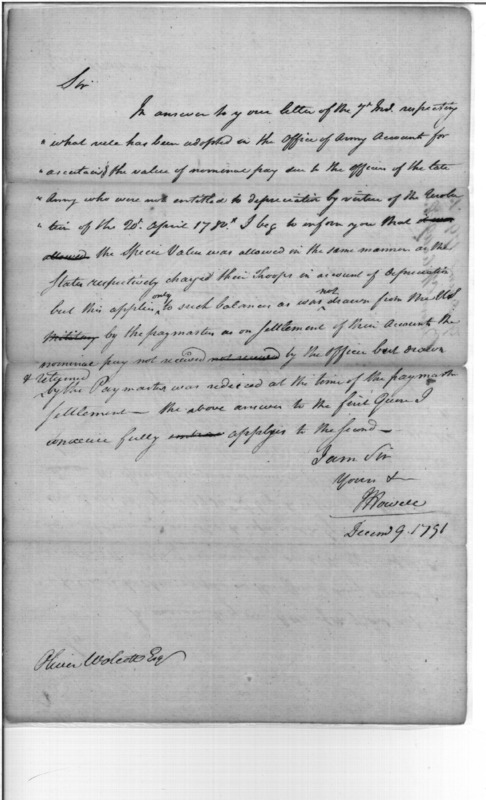 Sir
In answer to your letter of the 7th Ins. respecting
" what rule has been adopted in the Office of Army Accounts for
" ascertaing the value of nominal pay due to the officers of the late
" Army who were not entitled to depreciation by virtue of the Resolu
" tion of the 20th April 1780" I beg to inform you that
allowed the Specie Value was allowed in the same manner as the
States respectively charged their Troops in account of depreciation
but this applies only to such balances as was not drawn from the U S
Military by the paymasters as on Settlement of their Accounts the
nominal pay not received not received by the Officer but drawn
& returned by the Paymaster was reduced at the time of the paymasters
Settlement — the above answer to the first Quere I
conceive fully applys to the Second —
I am Sir
Yours &
J Howell
Decem 9. 1791
Oliver Wolcott Esq